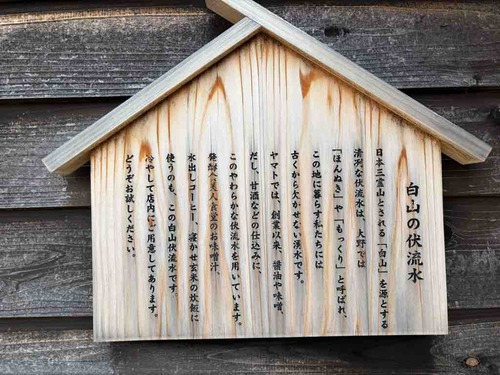 白山の伏流水
日本三霊山とされる「白山」を源とする
清冽な伏流水は、大野では
「ほんぬき」や「もっくり」と呼ばれ、
この地に暮らす私たちには
古くから欠かせない湧水です。
ヤマトでは、創業以来、醤油や味噌、
だし、甘酒などの仕込みに、
このやわらかな伏流水を用いています。
発酵食美人食堂のお味噌汁、
水出しコーヒー、寝かせ玄米の炊飯に
使うのも、この白山伏流水です。
冷やして店内にご用意してあります。
どうぞお試しください。